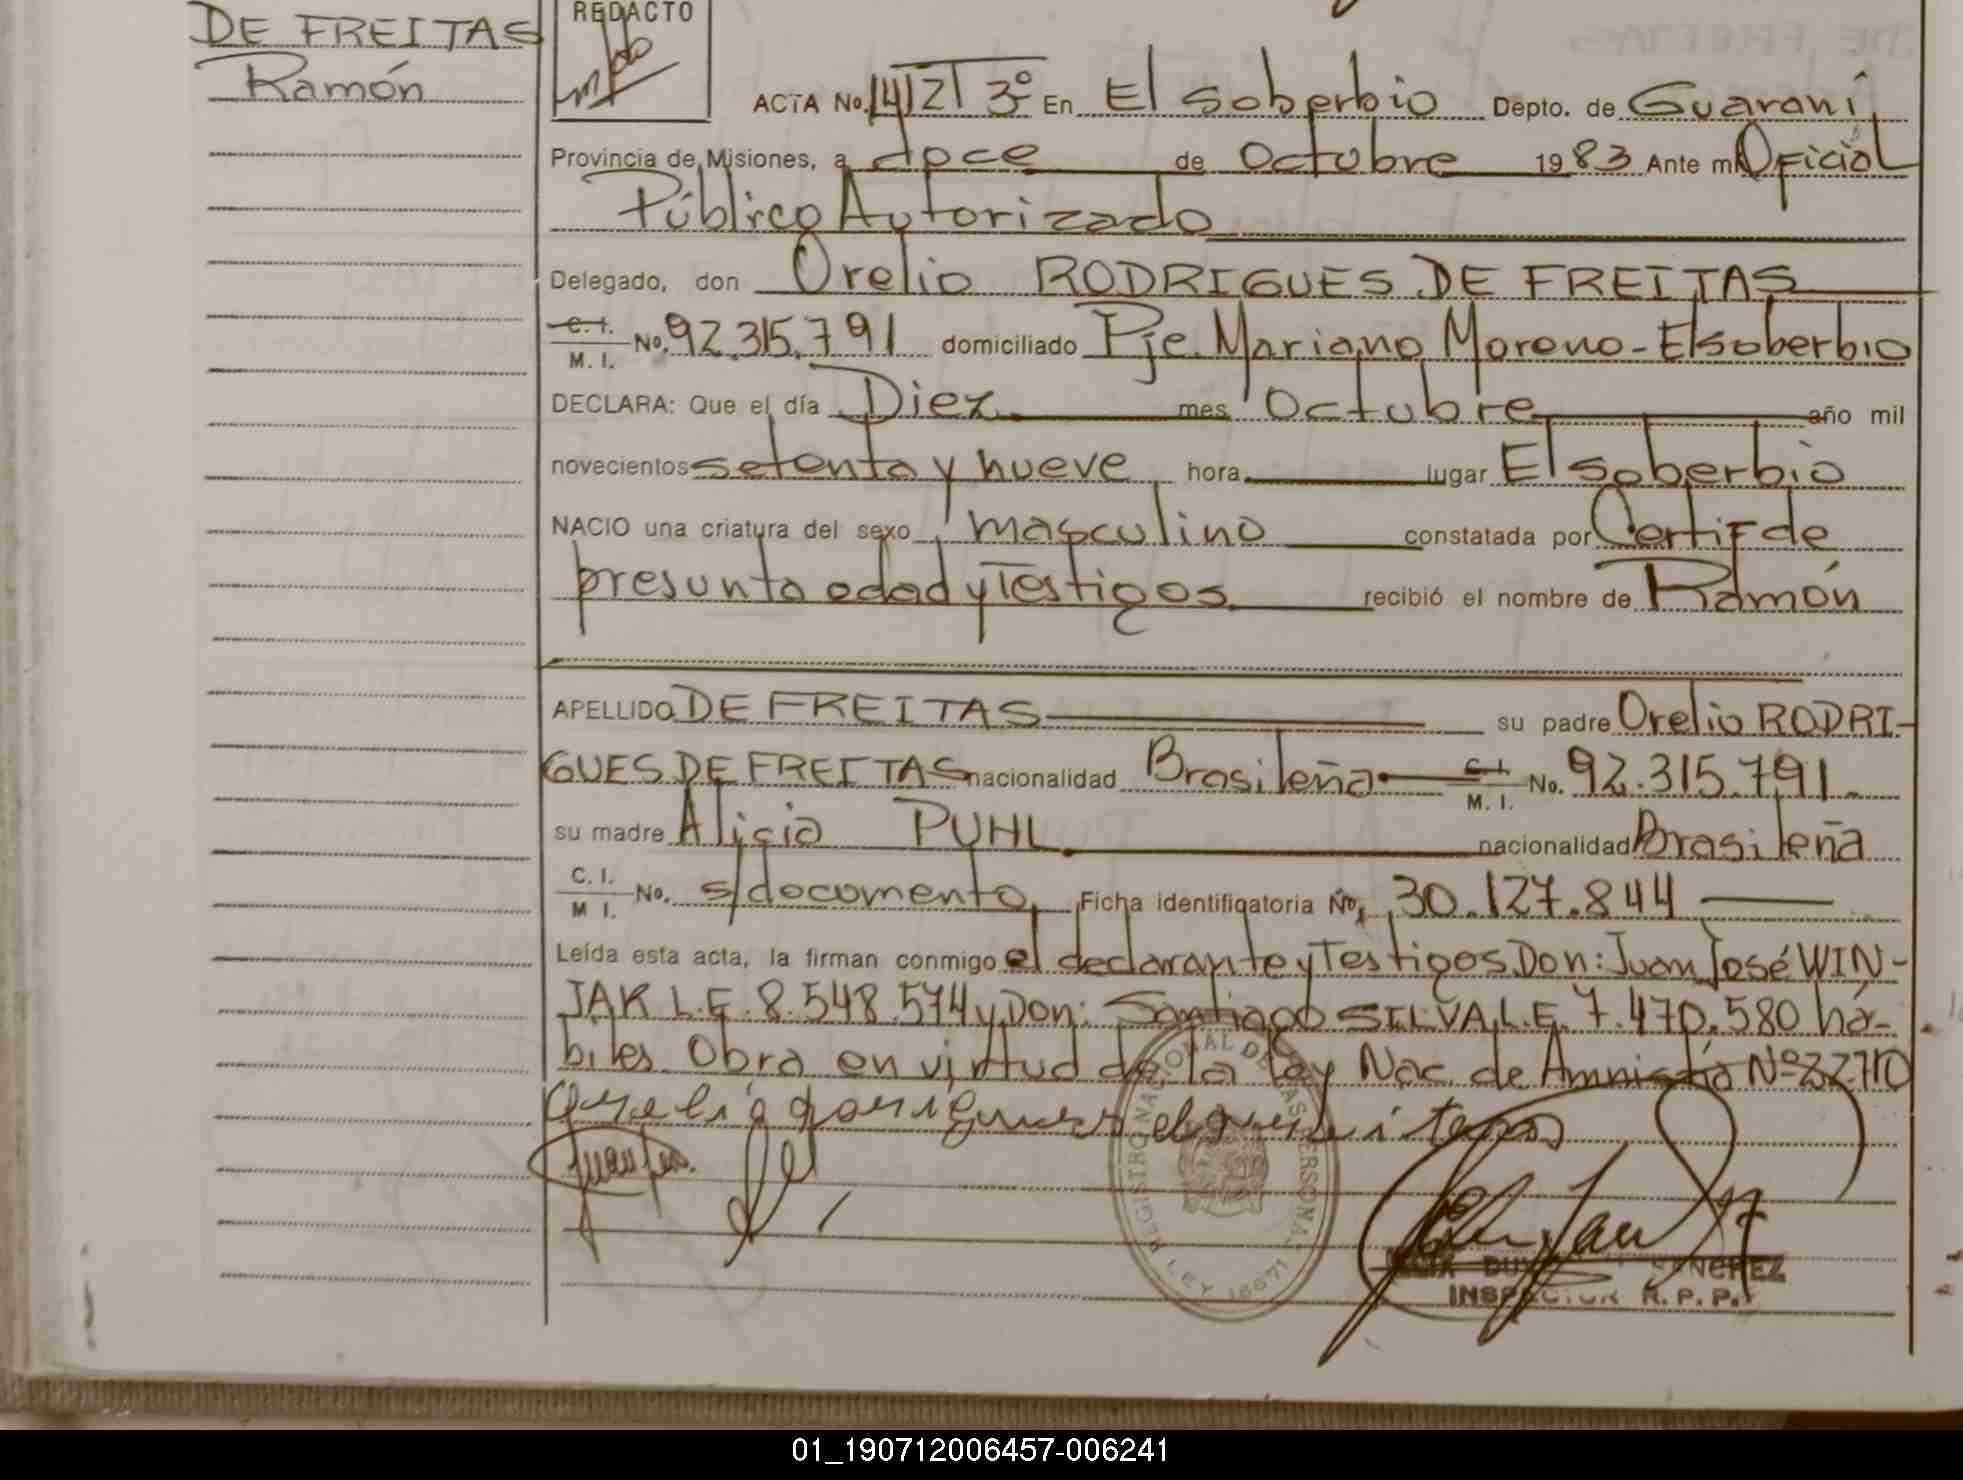 DE FREITAS
Ramón
REDACTO
ACTA No. 1412 T 3º En El soberbio Depto. de Guaraní
Provincia de Misiones, a doce de Octubre 1983 Ante mi Oficial
Público Autorizado
Delegado, don Orelio RODRIGUES DE FREITAS
C. I. / M. I. No. 92.315.791 domiciliado Pje. Mariano Moreno - El soberbio
DECLARA: Que el día Diez mes Octubre año mil
novecientos setenta y nueve hora lugar El soberbio
NACIO una criatura del sexo masculino constatada por Certif de
presunta edad y Testigos recibió el nombre de Ramón
APELLIDO DE FREITAS su padre Orelio RODRI-
GUES DE FREITAS nacionalidad Brasileña C. I. / M. I. No. 92.315.791
su madre Alicia PUHL nacionalidad Brasileña
C. I. / M I. No. s/documento Ficha identificatoria No. 30.127.844
Leída esta acta, la firman conmigo el declarante y Testigos Don: Juan José WIN-
JAK L.E. 8.548.574 y Don: Santiago SILVA L.E. 7.470.580 há-
biles Obra en virtud de la ley Nac. de Amnistía Nº 22.710
REGISTRO NACIONAL DE LAS PERSONAS
LEY 16671
SANCHEZ
INSPECTOR R. P. P.
01_190712006457-006241